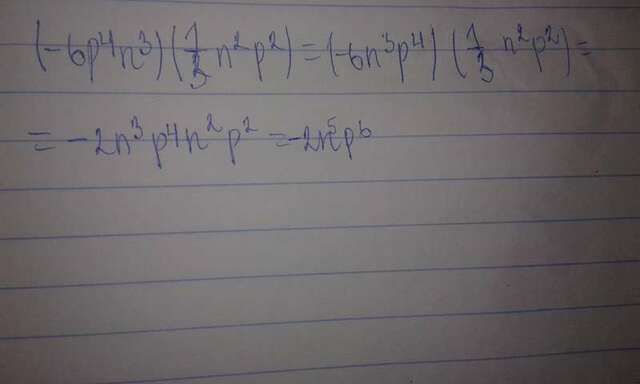 (-6p⁴n³)(1/3 n²p²)=(-6n³p⁴)(1/3 n²p²)=
=-2n³p⁴n²p²=-2n⁵p⁶